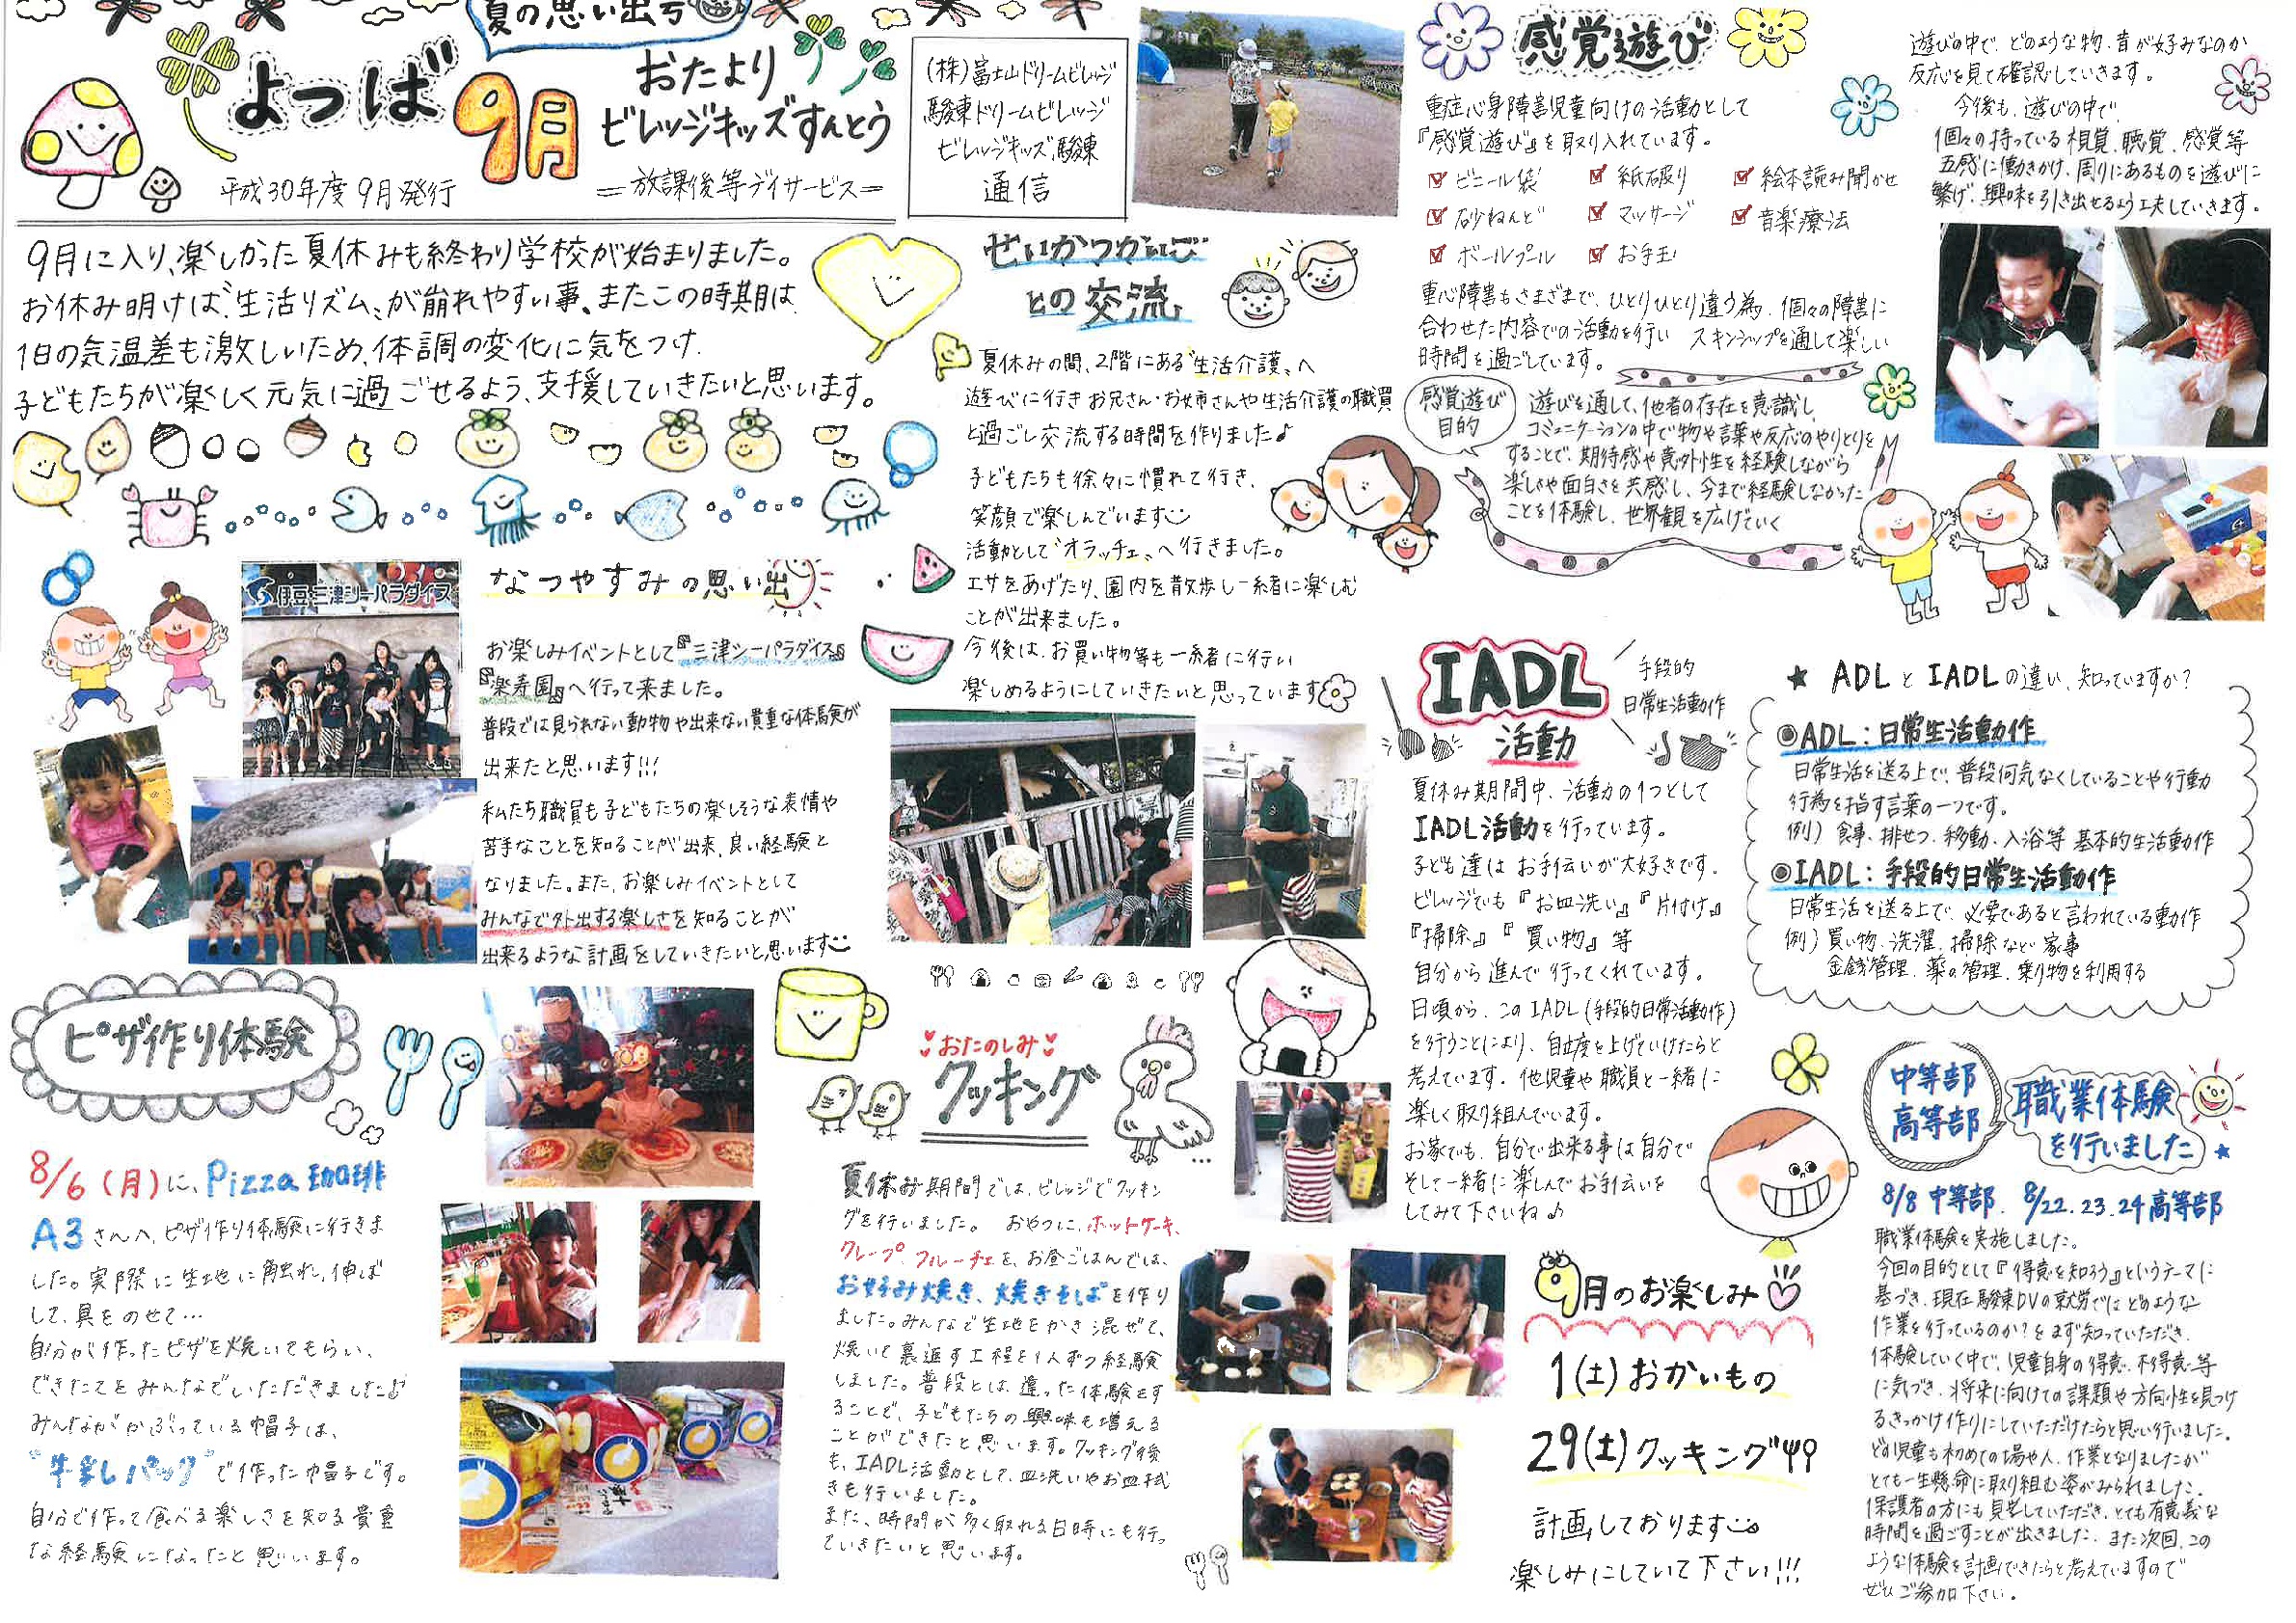 夏の思い出号
よつば 9月
おたより
ビレッジキッズすんとう
平成30年度 9月発行
=放課後等デイサービス=
(株)富士山ドリームビレッジ
駿東ドリームビレッジ
ビレッジキッズ駿東
通信
9月に入り、楽しかった夏休みも終わり学校が始まりました。
お休み明けは“生活リズム〟が崩れやすい事、またこの時期は
1日の気温差も激しいため、体調の変化に気をつけ
子どもたちが楽しく元気に過ごせるよう、支援していきたいと思います。
なつやすみの思い出
伊豆・三津シーパラダイス
お楽しみイベントとして『三津シーパラダイス』
『楽寿園』へ行って来ました。
普段では見られない動物や出来ない貴重な体験が
出来たと思います!!!
私たち職員も子どもたちの楽しそうな表情や
苦手なことを知ることが出来、良い経験と
なりました。また、お楽しみイベントとして
みんなで外出する楽しさを知ることが
出来るような計画をしていきたいと思います
ピザ作り体験
8/6(月)に、Pizza珈琲
A3さんへ、ピザ作り体験に行きま
した。実際に生地に触れ、伸ば
して、具をのせて…
自分が作ったピザを焼いてもらい、
できたてをみんなでいただきました♪
みんながかぶっている帽子は、
“牛乳パック”で作った帽子です。
自分で作って食べる楽しさを知る貴重
な経験になったと思います。
せいかつかいご
との交流
夏休みの間、2階にある“生活介護〟へ
遊びに行きお兄さん・お姉さんや生活介護の職員
と過ごし交流する時間を作りました♪
子どもたちも徐々に慣れて行き、
笑顔で楽しんでいます
活動として“オラッチェ〟へ行きました。
エサをあげたり、園内を散歩し一緒に楽しむ
ことが出来ました。
今後は、お買い物等も一緒に行い
楽しめるようにしていきたいと思っています
おたのしみ
クッキング
夏休み期間では、ビレッジでクッキン
グを行いました。 おやつに、ホットケーキ、
クレープ、フルーチェを、お昼ごはんでは、
お好み焼き、焼きそばを作り
ました。みんなで生地をかき混ぜて、
焼いて裏返す工程を1人ずつ経験
しました。普段とは、違った体験をす
ることで、子どもたちの興味も増える
ことができたと思います。クッキング後
も、IADL活動として、皿洗いやお皿拭
きも行いました。
また、時間が多く取れる日時にも行っ
ていきたいと思います。
感覚遊び
重症心身障害児童向けの活動として
『感覚遊び』を取り入れています。
☑ ビニール袋 ☑ 紙破り ☑ 絵本読み聞かせ
☑ 砂ねんど ☑ マッサージ ☑ 音楽療法
☑ ボールプール ☑ お手玉
重心障害もさまざまで、ひとりひとり違う為、個々の障害に
合わせた内容での活動を行い スキンシップを通して楽しい
時間を過ごしています。
感覚遊び
目的
遊びを通して、他者の存在を意識し、
コミュニケーションの中で物や言葉や反応のやりとりを
することで、期待感や意外性を経験しながら
楽しさや面白さを共感し、今まで経験しなかった
ことを体験し、世界観を広げていく
遊びの中で、どのような物、音が好みなのか
反応を見て確認していきます。
今後も、遊びの中で、
個々の持っている視覚、聴覚、感覚等
五感に働きかけ、周りにあるものを遊びに
繋げ、興味を引き出せるよう工夫していきます。
IADL
活動
手段的
日常生活動作
夏休み期間中、活動の1つとして
IADL活動を行っています。
子ども達はお手伝いが大好きです。
ビレッジでも『お皿洗い』『片付け』
『掃除』『買い物』等
自分から進んで行ってくれています。
日頃から、このIADL(手段的日常活動作)
を行うことにより、自由度を上げていけたらと
考えています。他児童や職員と一緒に
楽しく取り組んでいます。
お家でも、自分で出来る事は自分で
そして一緒に楽しんでお手伝いを
してみて下さいね♪
★ ADLとIADLの違い、知っていますか?
◎ADL:日常生活動作
日常生活を送る上で、普段何気なくしていることや行動
行為を指す言葉の一つです。
例)食事、排せつ、移動、入浴等 基本的生活動作
◎IADL:手段的日常生活動作
日常生活を送る上で、必要であると言われている動作
例)買い物、洗濯、掃除など家事
金銭管理、薬の管理、乗り物を利用する
9月のお楽しみ
1(土)おかいもの
29(土)クッキング
計画しております
楽しみにしていて下さい!!!
中等部
高等部
職業体験
を行いました★
8/8 中等部、8/22.23.24高等部
職業体験を実施しました。
今回の目的として『得意を知ろう』というテーマに
基づき、現在駿東DVの就労ではどのような
作業を行っているのか?をまず知っていただき、
体験していく中で、児童自身の得意、不得意等
に気づき、将来に向けての課題や方向性を見つけ
るきっかけ作りにしていただけたらと思い行いました。
どの児童も初めての場や人、作業となりましたが
とても一生懸命に取り組む姿がみられました。
保護者の方にも見学していただき、とても有意義な
時間を過ごすことが出きました。また次回、この
ような体験を計画できたらと考えていますので
ぜひご参加下さい。